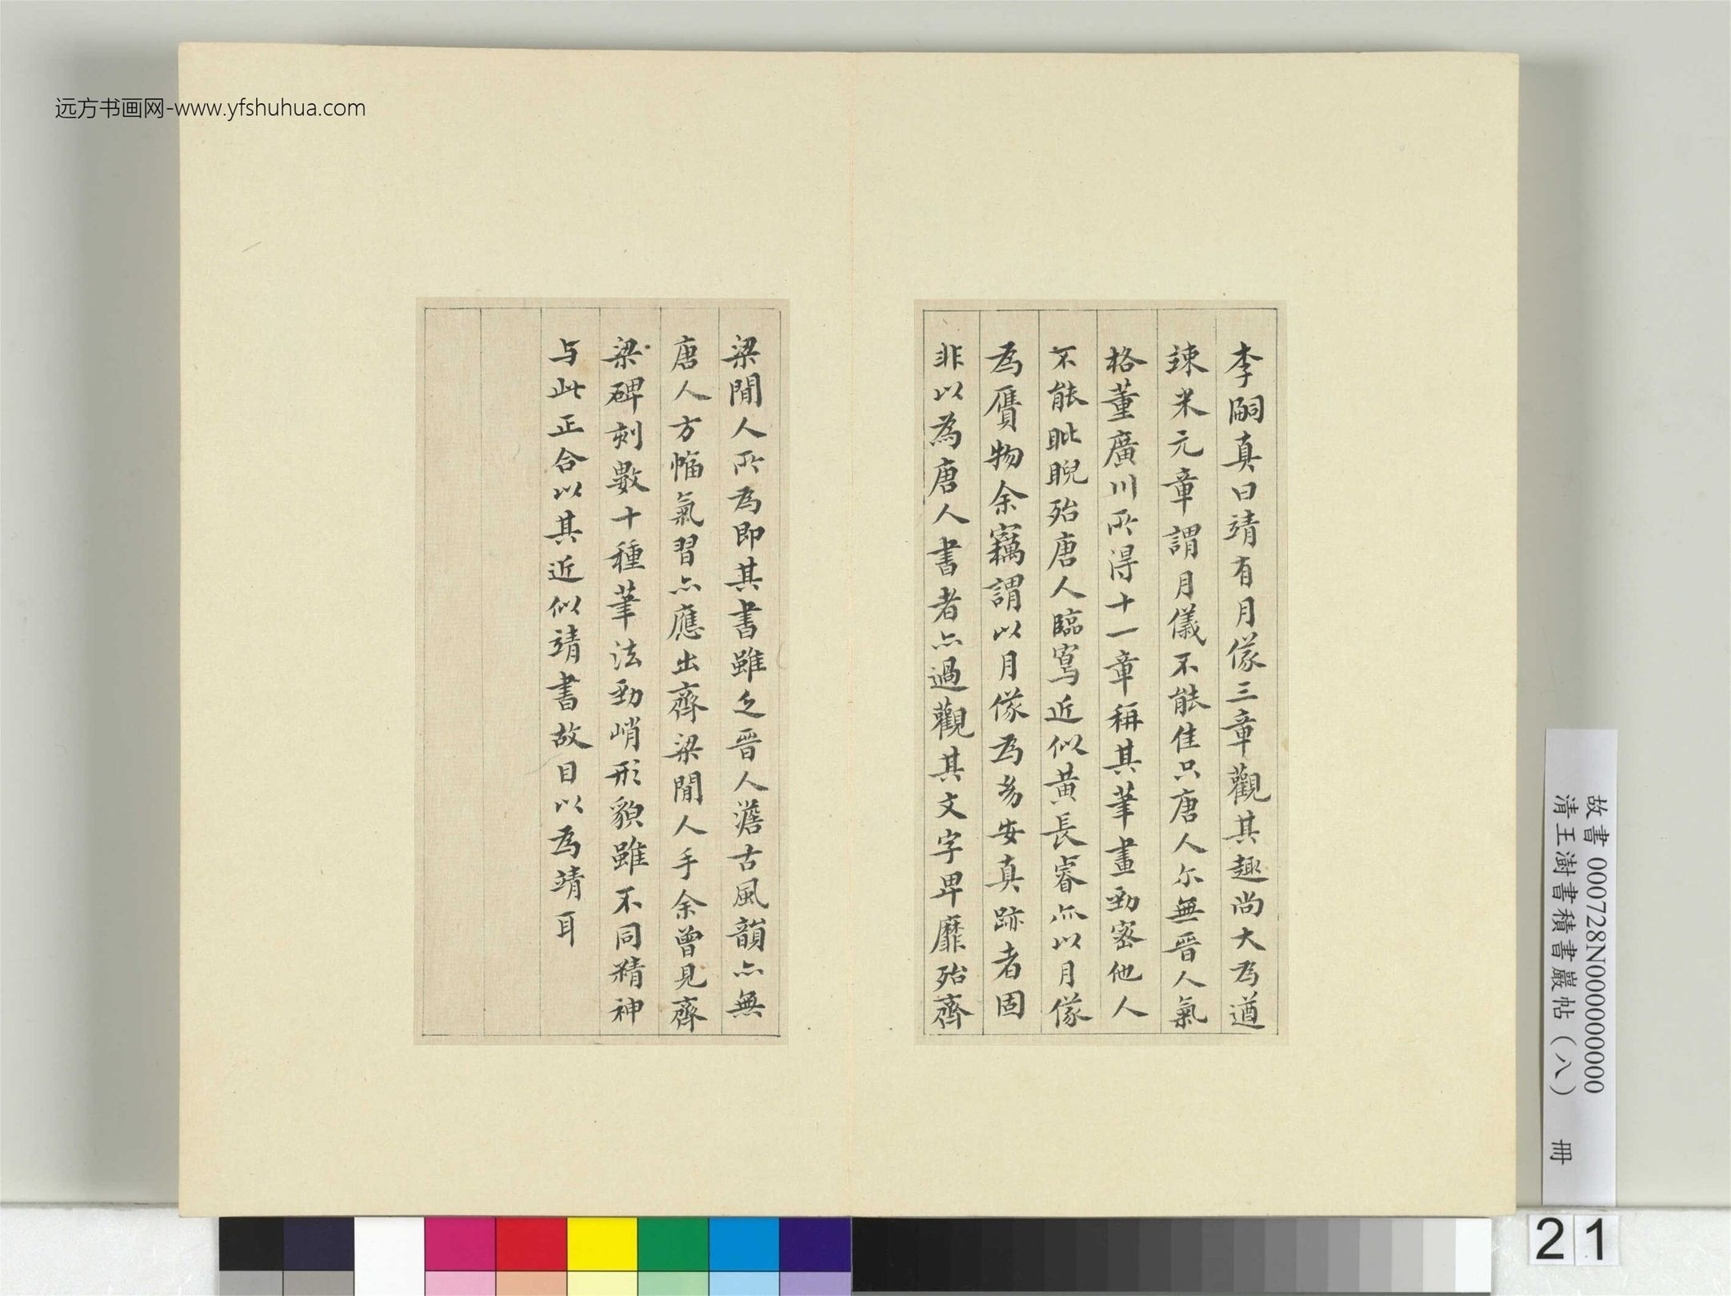 远方书画网-www.yfshuhua.com
李嗣真曰靖有月儀三章觀其趣尚大為遒
竦米元章謂月儀不能佳只唐人尓無晉人氣
格董廣川所得十一章稱其筆畫勁密他人
不能睥睨殆唐人臨寫近似黃長睿亦以月儀
為贋物余竊謂以月儀為多安真跡者固
非以為唐人書者亦過觀其文字卑靡殆齊
梁閒人所為即其書雖乏晉人澹古風韻亦無
唐人方幅氣習亦應出齊梁閒人手余曾見齊
梁碑刻數十種筆法勁峭形貌雖不同精神
与此正合以其近似靖書故目以為靖耳
故書 000728N000000000
清王澍書積書巖帖（八） 冊
21